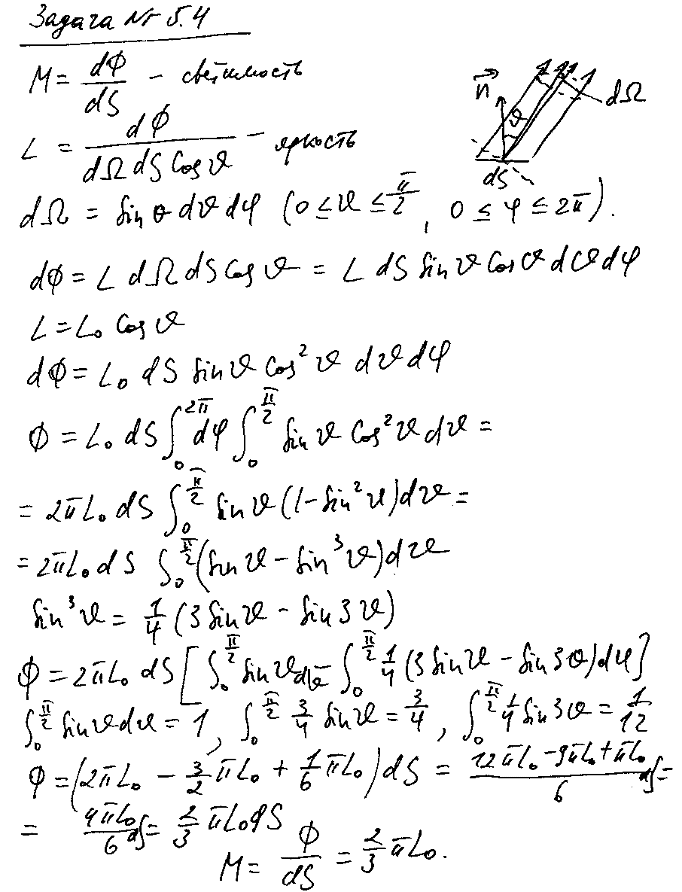 Задача № 5.4
M = dΦ/dS – светимость
L = dΦ/(dΩ dS Cos ϑ) – яркость
n⃗ ϑ dΩ dS
dΩ = Sin θ dϑ dφ (0 ≤ ϑ ≤ π/2, 0 ≤ φ ≤ 2π).
dΦ = L dΩ dS Cos ϑ = L dS Sin ϑ Cos ϑ dϑ dφ
L = L₀ Cos ϑ
dΦ = L₀ dS Sin ϑ Cos² ϑ dϑ dφ
Φ = L₀ dS ∫₀^2π dφ ∫₀^π/2 Sin ϑ Cos² ϑ dϑ =
= 2πL₀ dS ∫₀^π/2 Sin ϑ (1 – Sin² ϑ) dϑ =
= 2πL₀ dS ∫₀^π/2 (Sin ϑ – Sin³ ϑ) dϑ
Sin³ ϑ = 1/4 (3 Sin ϑ – Sin 3ϑ)
Φ = 2πL₀ dS [∫₀^π/2 Sin ϑ dϑ – ∫₀^π/2 1/4 (3 Sin ϑ – Sin 3ϑ) dφ]
∫₀^π/2 Sin ϑ dϑ = 1, ∫₀^π/2 3/4 Sin ϑ = 3/4, ∫₀^π/2 1/4 Sin 3ϑ = 1/12
Φ = (2πL₀ – 3/2 πL₀ + 1/6 πL₀) dS = (12πL₀ – 9πL₀ + πL₀)/6 dS =
= 4πL₀/6 dS = 2/3 πL₀ dS
M = Φ/dS = 2/3 πL₀.